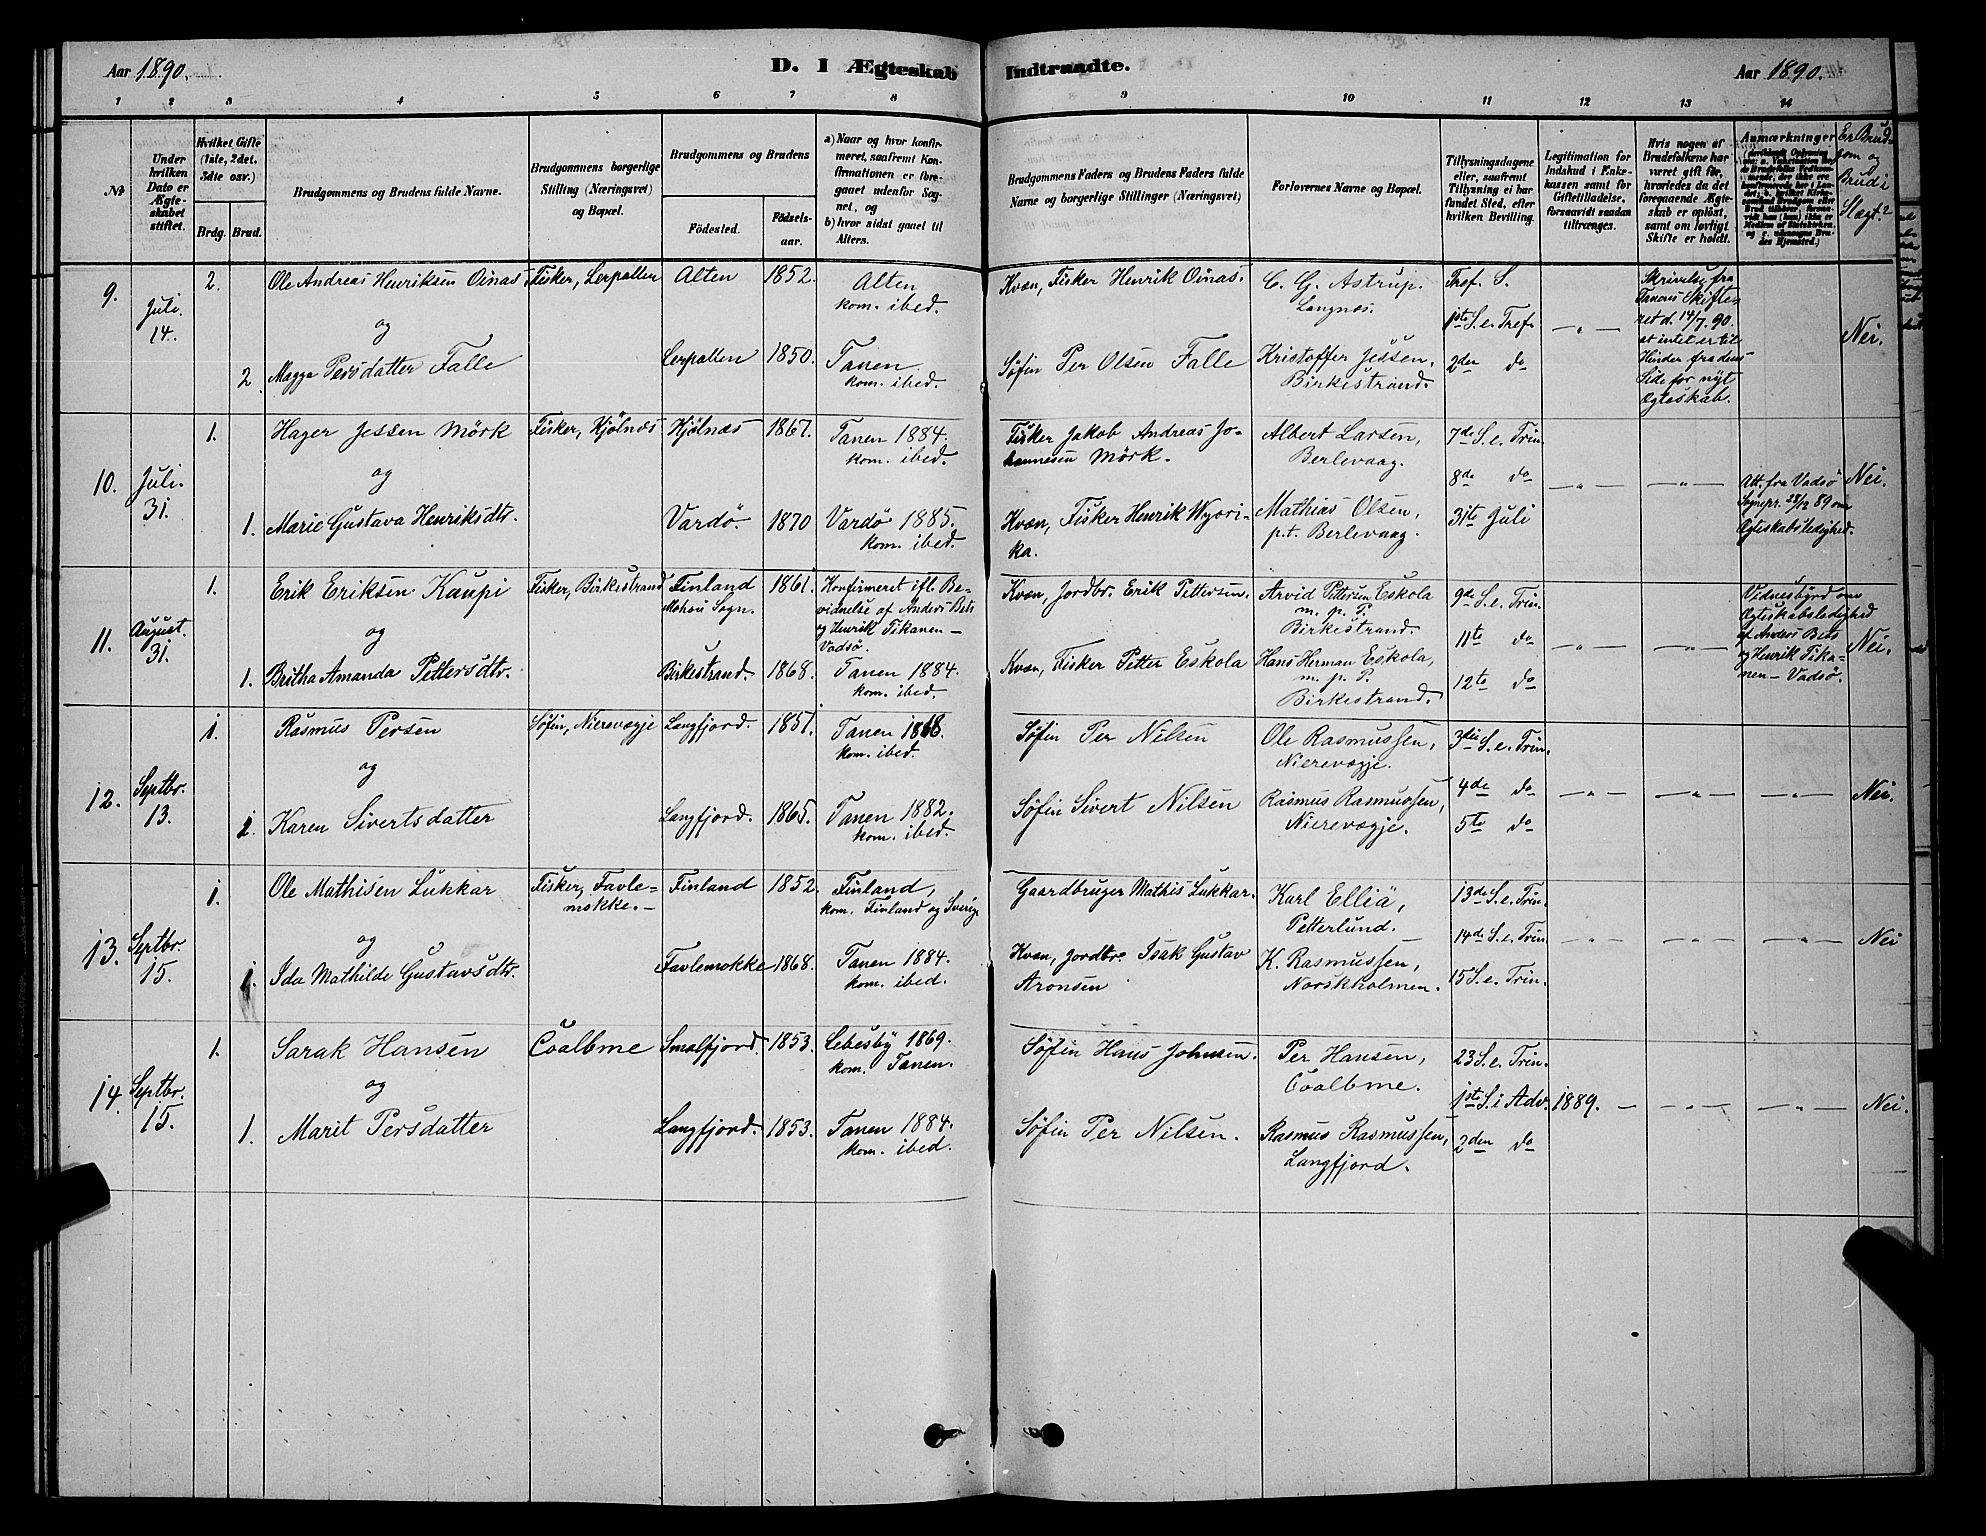 Aar 1890. D. I Ægteskab Indtraadte. Aar 1890.
1 2 3 4 5 6 7 8 9 10 11 12 13 14
№
Under hvilken Dato er Ægteskabet stiftet.
Hvilket Gifte (1ste, 2det, 3die osv.)
Brdg. Brud.
Brudgommens og Brudens fulde Navne.
Brudgommens borgerlige Stilling (Næringsvei) og Bopæl.
Brudgommens og Brudens
Fødested. Fødselsaar.
a) Naar og hvor konfirmeret, saafremt Konfirmationen er foregaaet udenfor Sognet, og
b) hvor sidst gaaet til Alters.
Brudgommens Faders og Brudens Faders fulde Navne og borgerlige Stillinger (Næringsvei)
Forlovernes Navne og Bopæl.
Tillysningsdagene eller, saafremt Tillysning ei har fundet Sted, efter hvilken Bevilling.
Legitimation for Indskud i Enkekassen samt for Giftetilladelse, forsaavidt saadan tiltrænges.
Hvis nogen af Brudefolkene har været gift før, hvorledes da det foregaaende Ægteskab er opløst, samt om lovligt Skifte er holdt.
Anmærkninger
Er Brudgom og Brud i Slægt?
9. Juli 14. 2. Ole Andreas Henriksen Oinas Fisker, Lerpollen Alten 1852. Alten kom. ibed. Kvæn, Fisker Henrik Oinas. C. G. Astrup. Langnæs. Tref. S.
og 1ste S. e. Tref. — " —
2 Magga Persdatter Falle Lerpollen 1850. Tanen kom. ibed. Søfin Per Olsen Falle Kristoffer Jessen, Birkestrand. 2den do
Skrivelse fra Tanens Skifteret d. 14/7. 90. at intet er til Hinder fra dens Side for nyt Ægteskab. Nei.
10. Juli. 31. 1. Hager Jessen Mörk Fisker, Kjölnæs Kjölnæs 1867. Tanen 1884. kom. ibed. Fisker Jakob Andreas Johannesen Mörk. Albert Larsen, Berlevaag. 7de S. e. Trin.
og 8de do — " — — " —
1. Marie Gustava Henriksdtr. Vardö. 1870 Vardö 1885. kom. ibed. Kvæn, Fisker Henrik Wyörika. Mathias Olsen, p.t. Berlevaag. 31te Juli
Att. fra Vadsö Sognepr. 28/12 89 om Ægteskabsledighed. Nei.
11. August. 31. 1. Erik Eriksen Kaupi Fisker, Birkestrand Finland Mohou Sogn. 1861. Konfirmeret ifl. Bevidnelse af Anders Bets og Henrik Tikanen — Vadsø. Kvæn, Jordbr. Erik Pettersen. Arvid Pettersen Eskola m. p. P. Birkestrand. 9de S. e. Trin.
og 11te do — " — — " —
1. Britha Amanda Pettersdtr. Birkestrand. 1868. Tanen 1884. kom. ibed. Kvæn, Fisker Petter Eskola Hans Herman Eskola, m. p. P. Birkestrand. 12te do
Vidnesbyrd om Ægteskabsledighed af Anders Bets og Henrik Tikanen — Vadsø. Nei.
12. Septbr. 13. 1. Rasmus Persen Söfin, Nierevægje Langfjord. 1851. Tanen 1868. kom. ibed. Søfin Per Nilsen Ole Rasmussen, Nierevægje. 3die S. e. Trin.
og 4de do — " — — " — — " — Nei.
1. Karen Sivertsdatter Langfjord. 1865. Tanen 1882. kom. ibed. Søfin Sivert Nilsen Rasmus Rasmussen, Nierevægje. 5te do
13. Septbr. 15. 1. Ole Mathisen Lukkar Fisker, Favlemokke. — Finland 1852. Finland, kom. Finland og Sverige Gaardbruger Mathis Lukkar. Karl Elliä, Petterlund. 13de S. e. Trin.
og 14de S. e. Trin — " — — " — — " — Nei
1. Ida Mathilde Gustavsdtr. Favlemokke 1868. Tanen 1884. kom. ibed. Kvæn, Jordbr. Isak Gustav Aronsen K. Rasmussen, Norskholmen. 15 S. e. Trin.
14. Septbr. 15. 1. Sarak Hansen Coalbme Smalfjord. 1853. Lebesby 1869. kom. Tanen. Søfin Hans Johnsen. Per Hansen, Coalbme. 23 S. e. Trin.
og 1ste S. i Adv. 1889. — — " — — " — Nei.
1. Marit Persdatter Langfjord. 1853. Tanen 1884. kom. ibed. Søfin Per Nilsen. Rasmus Rasmussen, Langfjord. 2den do